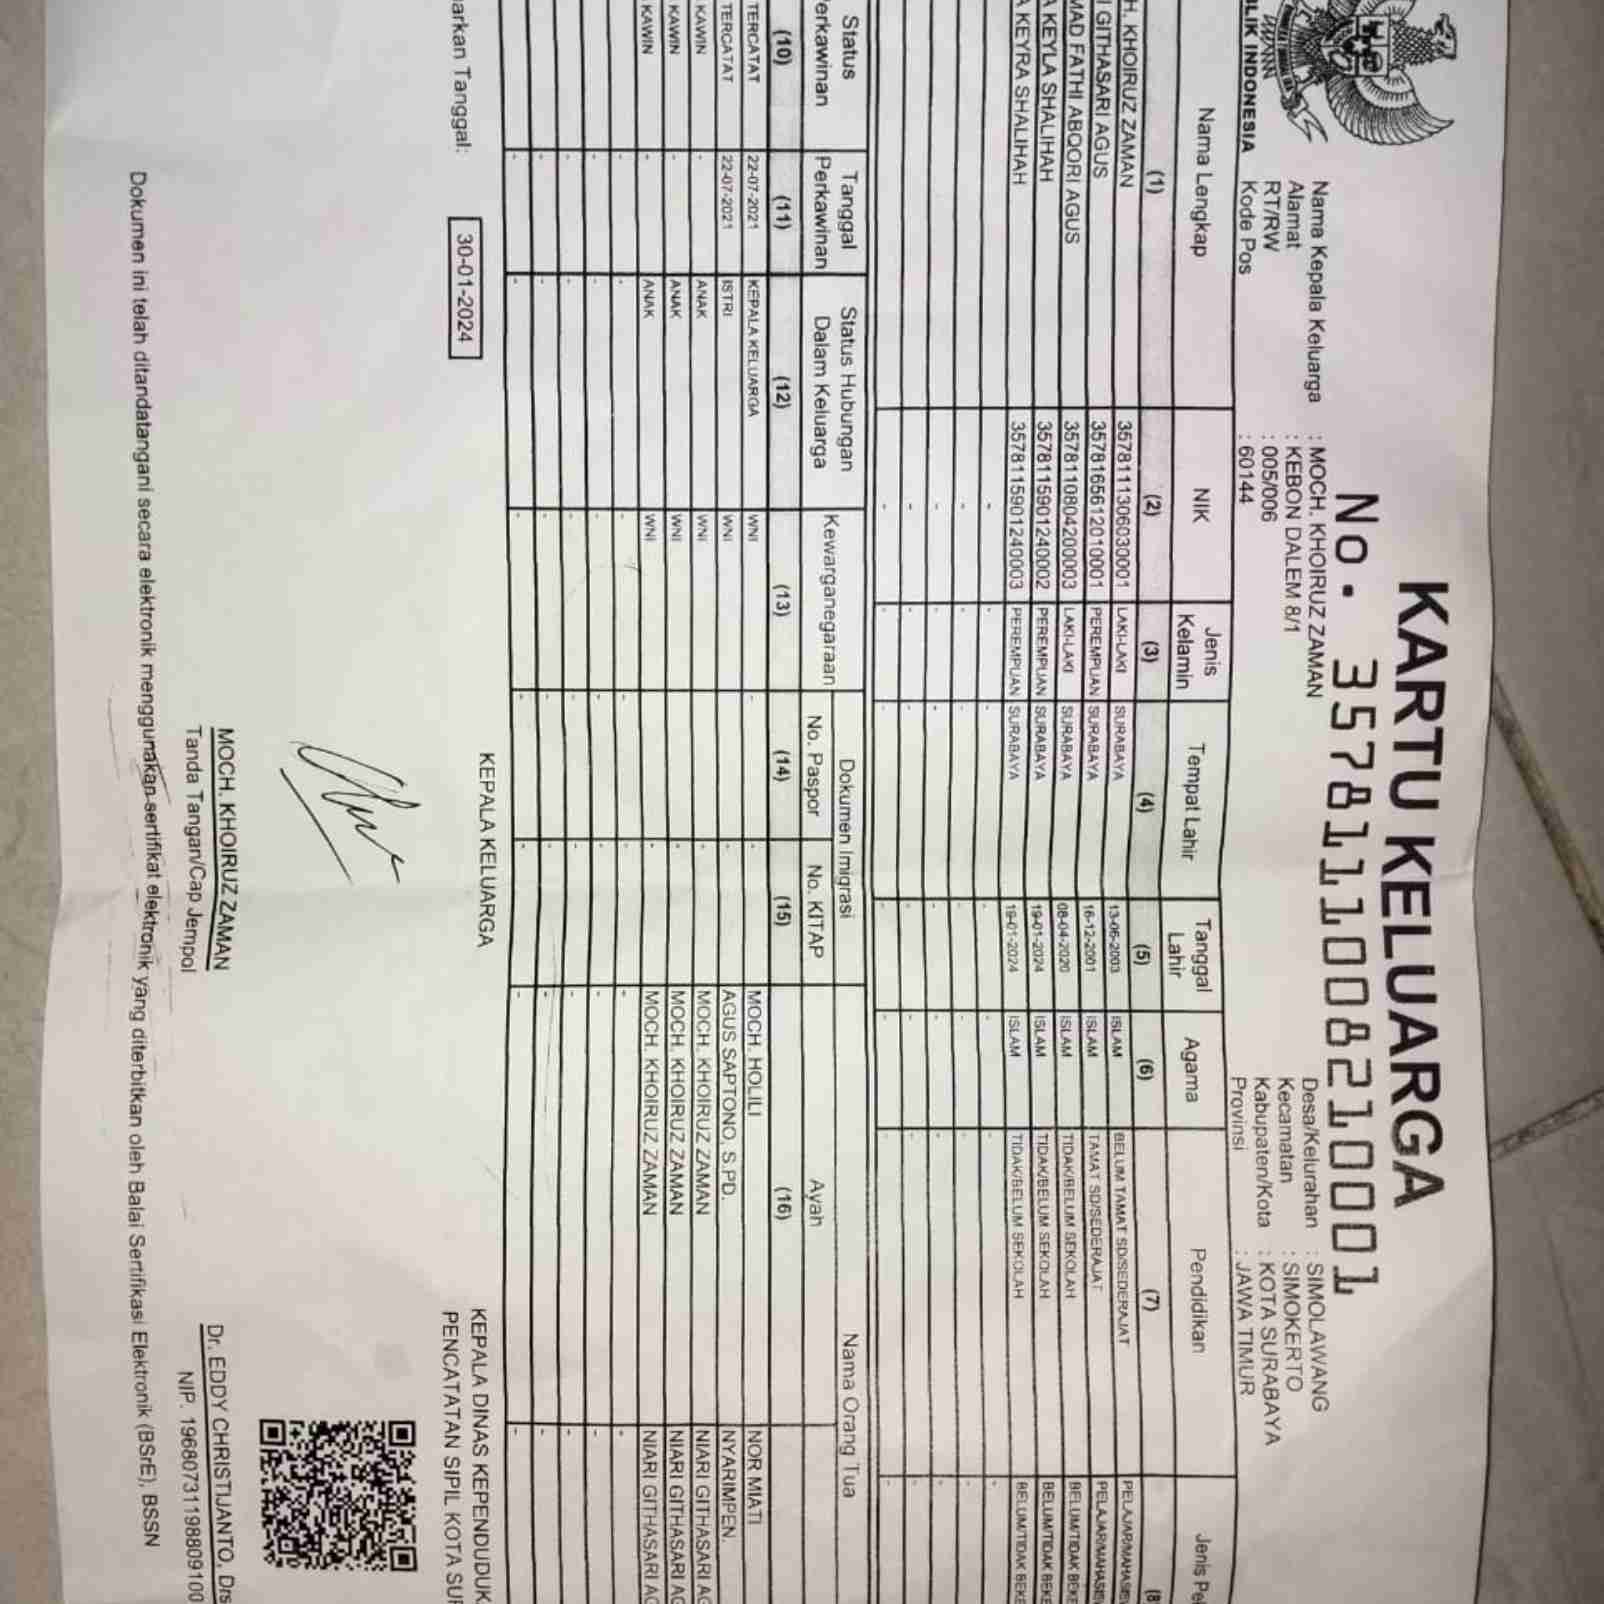 KARTU KELUARGA
No. 3578111008210001
BLIK INDONESIA
Nama Kepala Keluarga : MOCH. KHOIRUZ ZAMAN
Alamat : KEBON DALEM 8/1
RT/RW : 005/006
Kode Pos : 60144
Desa/Kelurahan : SIMOLAWANG
Kecamatan : SIMOKERTO
Kabupaten/Kota : KOTA SURABAYA
Provinsi : JAWA TIMUR
Nama Lengkap NIK Jenis Kelamin Tempat Lahir Tanggal Lahir Agama Pendidikan Jenis Pe
(1) (2) (3) (4) (5) (6) (7) (8
H. KHOIRUZ ZAMAN 3578111306030001 LAKI-LAKI SURABAYA 13-06-2003 ISLAM BELUM TAMAT SD/SEDERAJAT PELAJAR/MAHASISW
I GITHASARI AGUS 3578165612010001 PEREMPUAN SURABAYA 16-12-2001 ISLAM TAMAT SD/SEDERAJAT PELAJAR/MAHASISW
MAD FATHI ABQORI AGUS 3578110804200003 LAKI-LAKI SURABAYA 08-04-2020 ISLAM TIDAK/BELUM SEKOLAH BELUM/TIDAK BEKE
A KEYLA SHALIHAH 3578115901240002 PEREMPUAN SURABAYA 19-01-2024 ISLAM TIDAK/BELUM SEKOLAH BELUM/TIDAK BEKE
A KEYRA SHALIHAH 3578115901240003 PEREMPUAN SURABAYA 19-01-2024 ISLAM TIDAK/BELUM SEKOLAH BELUM/TIDAK BEKE
- - - - - - -
- - - - - - -
- - - - - - -
- - - - - - -
- - - - - - -
Status Perkawinan Tanggal Perkawinan Status Hubungan Dalam Keluarga Kewarganegaraan Dokumen Imigrasi Nama Orang Tua
No. Paspor No. KITAP Ayah
(10) (11) (12) (13) (14) (15) (16)
TERCATAT 22-07-2021 KEPALA KELUARGA WNI - - MOCH. HOLILI NOR MIATI
TERCATAT 22-07-2021 ISTRI WNI - - AGUS SAPTONO, S.PD. NYARIMPEN.
KAWIN - ANAK WNI - - MOCH. KHOIRUZ ZAMAN NIARI GITHASARI AG
KAWIN - ANAK WNI - - MOCH. KHOIRUZ ZAMAN NIARI GITHASARI AG
KAWIN - ANAK WNI - - MOCH. KHOIRUZ ZAMAN NIARI GITHASARI AG
- - - - - - -
- - - - - - -
- - - - - - -
- - - - - - -
- - - - - - -
arkan Tanggal: 30-01-2024
KEPALA KELUARGA
MOCH. KHOIRUZ ZAMAN
Tanda Tangan/Cap Jempol
KEPALA DINAS KEPENDUDUK
PENCATATAN SIPIL KOTA SU
Dr. EDDY CHRISTIJANTO, Drs
NIP. 19680731198809100
Dokumen ini telah ditandatangani secara elektronik menggunakan sertifikat elektronik yang diterbitkan oleh Balai Sertifikasi Elektronik (BSrE), BSSN